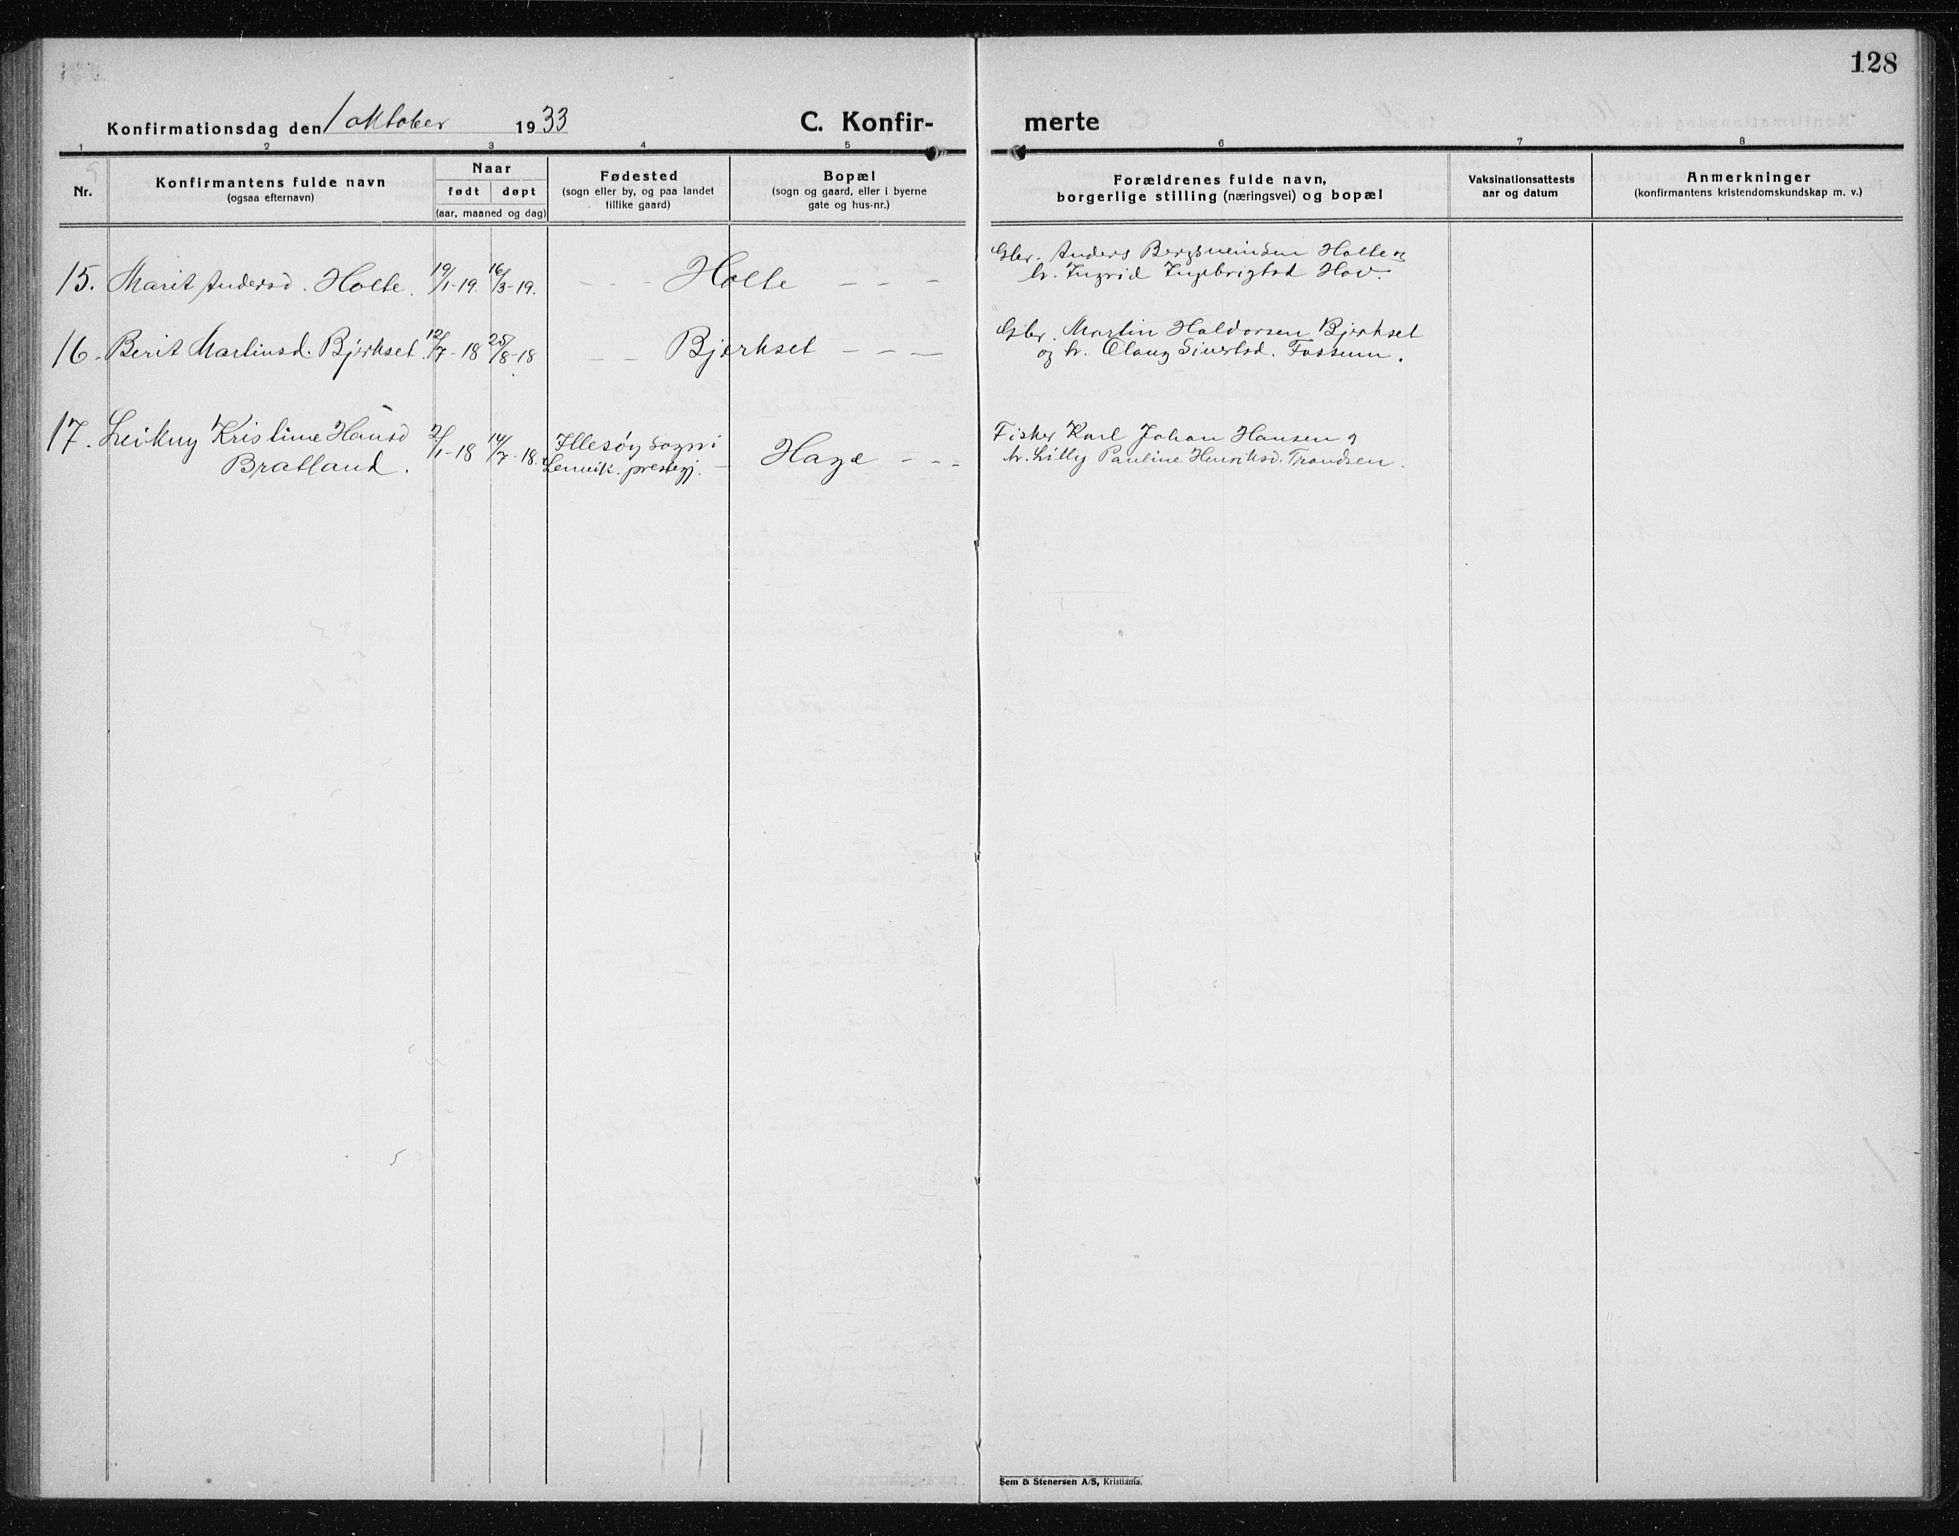 128
Konfirmationsdag den 1 oktober 1933
C. Konfir- merte
1 2 3 4 5 6 7 8
Nr.
Konfirmantens fulde navn
(ogsaa efternavn)
Naar
født døpt
(aar, maaned og dag)
Fødested
(sogn eller by, og paa landet
tillike gaard)
Bopæl
(sogn og gaard, eller i byerne
gate og hus-nr.)
Forældrenes fulde navn,
borgerlige stilling (næringsvei) og bopæl
Vaksinationsattests
aar og datum
Anmerkninger
(konfirmantens kristendomskundskap m. v.)
15. Marit Andersd. Holte. 19/1-19. 16/3-19. - - - Holte - - -
Gbr. Anders Bergsveinsen Holte og
h. Ingrid Ingebrigtsd Hov.
16. Berit Martinsd. Bjerkset. 12/7-18 25/8-18 - - Bjerkset - - -
Gbr. Martin Haldorsen Bjerkset
og h. Olaug Sivertsd. Fossum.
17. Leikny Kristine Hansd
Bratland.
2/1-18 14/7-18.
Hlesøy sogn i
Lenvik. prestegj. -
Haga - - -
Fisker Karl Johan Hansen og
h. Lilly Pauline Henriksd. Trondsen.
Sem & Stenersen A/S, Kristiania.